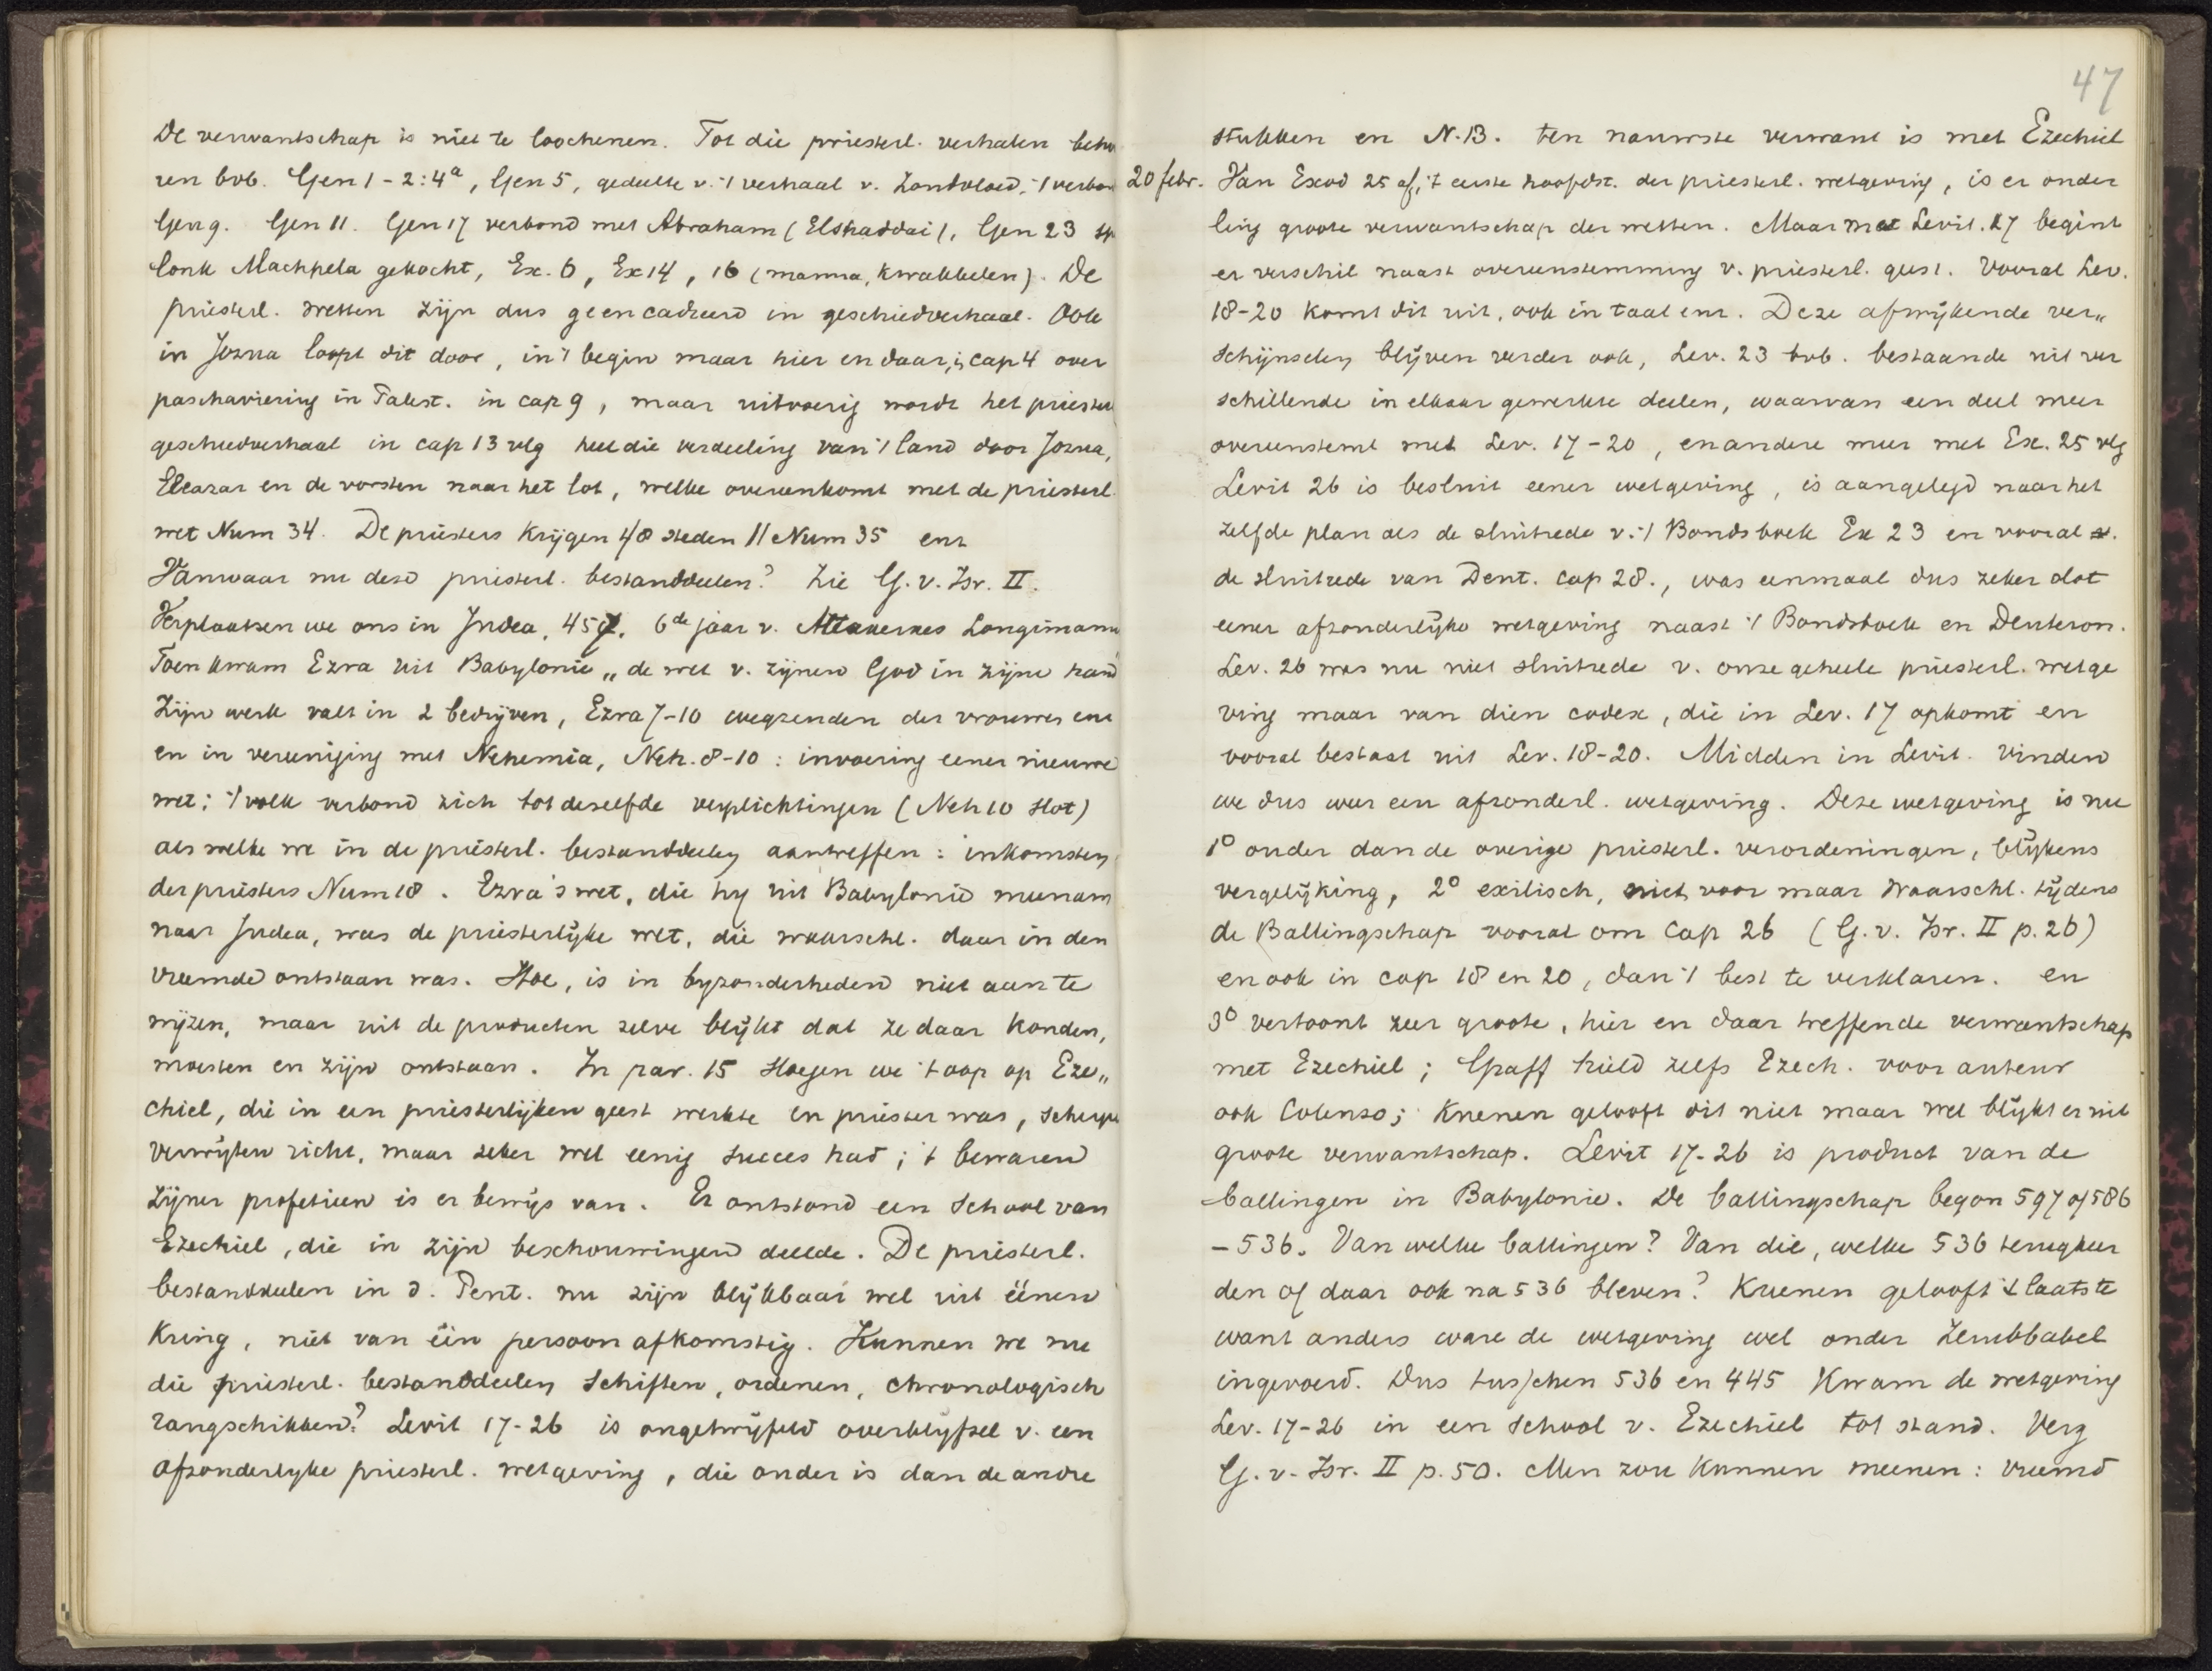 De verwantschap is niet te loochenen. Tot die priesterl. verhalen beho
ren bvb. Gen 1-2:4a, Gen 5, gedeelte v. 't verhaal v. Zondvloed, 't verbon
Gen 9. Gen 11. Gen 17 verbond met Abraham (Elshaddai), Gen 23 sp
lonk Machpela gekocht, Ex. 6, Ex 14, 16 (manna, kwakkelen). De
priesterl. wetten zijn dus geencadreerd in geschiedverhaal. Ook
in Jozua loopt dit door, in 't begin maar hier en daar, in cap 4 over
paschaviering in Palest. in cap 9, maar uitvoerig wordt het priester
geschiedverhaal in cap 13 vlg heel die verdeeling van 't land door Jozua,
Eleazar en de vorsten naar het lot, welke overeenkomt met de priesterl.
wet Num 34. De priesters krijgen 48 steden || Num 35 enz
Vanwaar nu deze priesterl. bestanddeelen? Zie G. v. Isr. II.
Verplaatsen we ons in Judea, 457, 6de jaar v. Artaxerxes Longimanu
Toen kwam Ezra uit Babylonie „de wet v. zijnen God in zijne hand
Zijn werk valt in 2 bedrijven, Ezra 7-10 wegzenden der vrouwen enz
en in vereeniging met Nehemia, Neh. 8-10: invoering eener nieuwe
wet; 't volk verbond zich tot dezelfde verplichtingen (Neh 10 slot)
als welke we in de priesterl. bestanddeelen aantreffen: inkomsten
der priesters Num 18. Ezra's wet, die hij uit Babylonie meenam
naar Judea, was de priesterlijke wet, die waarschl. daar in den
vreemde ontstaan was. Hoe, is in byzonderheden niet aan te
wijzen, maar uit de producten zelve blijkt dat ze daar konden,
moesten en zijn ontstaan. In par. 15 sloegen we 't oog op Eze„
chiel, die in een priesterlijken geest werkte en priester was, scherpe
verwijten richt, maar zeker wel eenig succes had; 't bewaren
zijner profetieen is er bewijs van. Er ontstond een school van
Ezechiel, die in zijn beschouwingen deelde. De priesterl.
bestanddeelen in d. Pent. nu zijn blijkbaar wel uit éénen
Kring, niet van één persoon afkomstig. Kunnen we nu
die priesterl. bestanddeelen schiften, ordenen, chronologisch
rangschikken? Levit 17-26 is ongetwijfeld overblijfsel v. een
afzonderlyke priesterl. wetgeving, die ouder is dan de andre
47
stukken en N.B. ten nauwste verwant is met Ezechiel
20 febr. Van Exod 25 af, 't eerste hoofdst. der priesterl. wetgeving, is er onder
ling groote verwantschap der wetten. Maar met Levit. 17 begint
er verschil naast overeenstemming v. priesterl. geest. Vooral Lev.
18-20 komt dit uit, ook in taal enz. Deze afwijkende ver„
schijnselen blijven verder ook, Lev. 23 bvb. bestaande uit ver
schillende in elkaar gewerkte deelen, waarvan een deel meer
overeenstemt met Lev. 17-20, en andere meer met Ex. 25 vlg
Levit 26 is besluit eener wetgeving, is aangelegd naar het
zelfde plan als de slutrede v. 't Bondsboek Ex 23 en vooral v.
de slutrede van Deut. cap 28., was eenmaal dus zeker slot
eener afzonderlijke wetgeving naast 't Bondsboek en Deuteron.
Lev. 26 was nu niet slutrede v. onze geheele priesterl. wetge
ving maar van dien codex, die in Lev. 17 opkomt en
vooral bestaat uit Lev. 18-20. Midden in Levit. vinden
we dus weer een afzonderl. wetgeving. Deze wetgeving is nu
1o ouder dan de overige priesterl. verordeningen, blijkens
vergelijking, 2o exilisch, niet voor maar waarschl. tijdens
de Ballingschap vooral om cap 26 (G. v. Isr. II p. 26)
en ook in cap 18 en 20, dan 't best te verklaren. en
3o vertoont zeer groote, hier en daar treffende verwantschap
met Ezechiel; Graff hield zelfs Ezech. voor auteur
ook Colenso; Kuenen gelooft dit niet maar wel blijkt er uit
groote verwantschap. Levit 17-26 is product van de
ballingen in Babylonie. De ballingschap begon 597 of 586
-536. Van welke ballingen? Van die, welke 536 terugkeer
den of daar ook na 536 bleven? Kuenen gelooft 't laatste
want anders ware de wetgeving wel onder Zerubbabel
ingevoerd. Dus tusschen 536 en 445 kwam de wetgeving
Lev. 17-26 in een school v. Ezechiel tot stand. Verg
G. v. Isr. II p. 50. Men zou kunnen meenen: vreemd